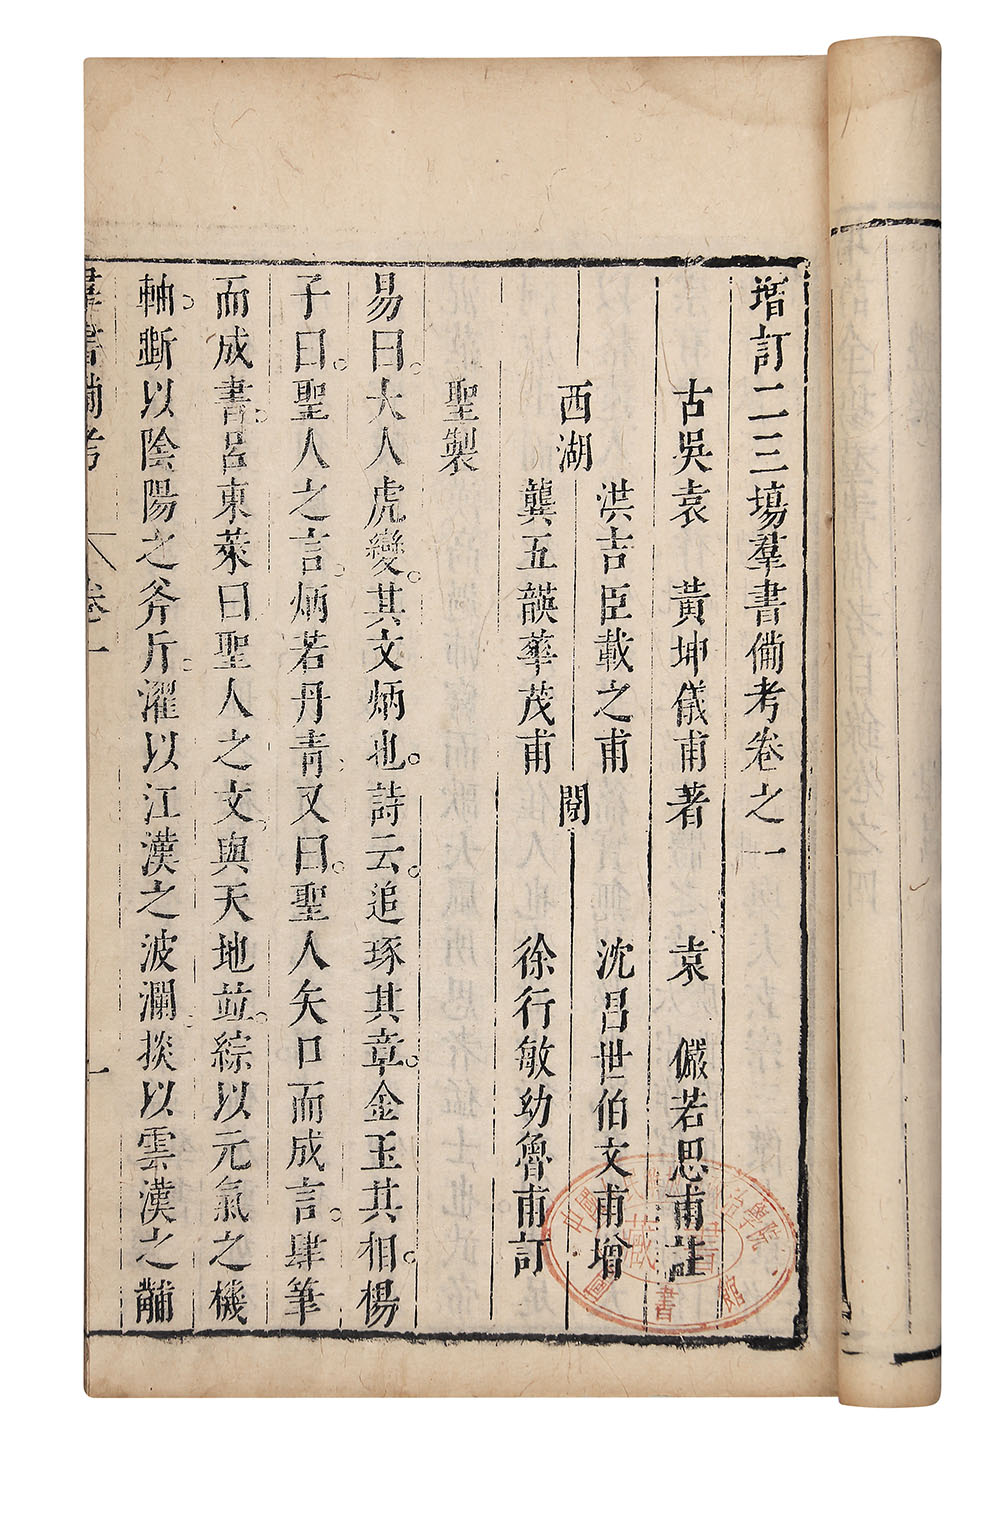 增訂二三塲羣書備考卷之一
古吳袁 黃坤儀甫著 袁 儼若思甫註
西湖 洪吉臣載之甫 閱 沈昌世伯文甫增
龔五韺華茂甫 徐行敏幼魯甫訂
聖製
易曰大人虎變其文炳也詩云追琢其章金玉其相楊
子曰聖人之言炳若丹青又曰聖人矢口而成言肆筆
而成書呂東萊曰聖人之文與天地並綜以元氣之機
軸斲以陰陽之斧斤濯以江漢之波瀾掞以雲漢之黼
羣書備考 卷一 一